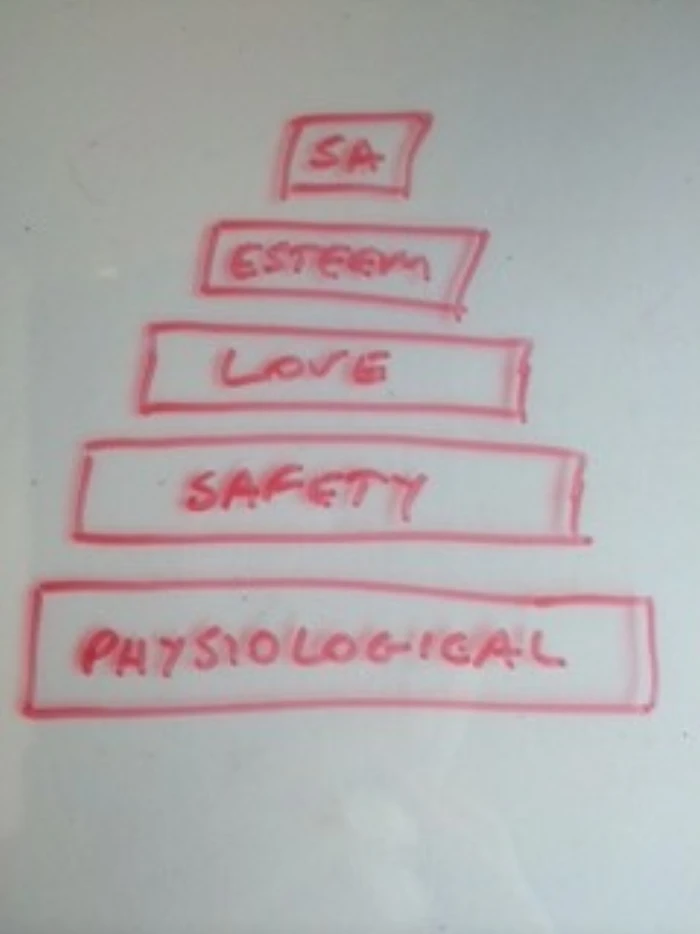 SA
ESTEEM
LOVE
SAFETY
PHYSIOLOGICAL